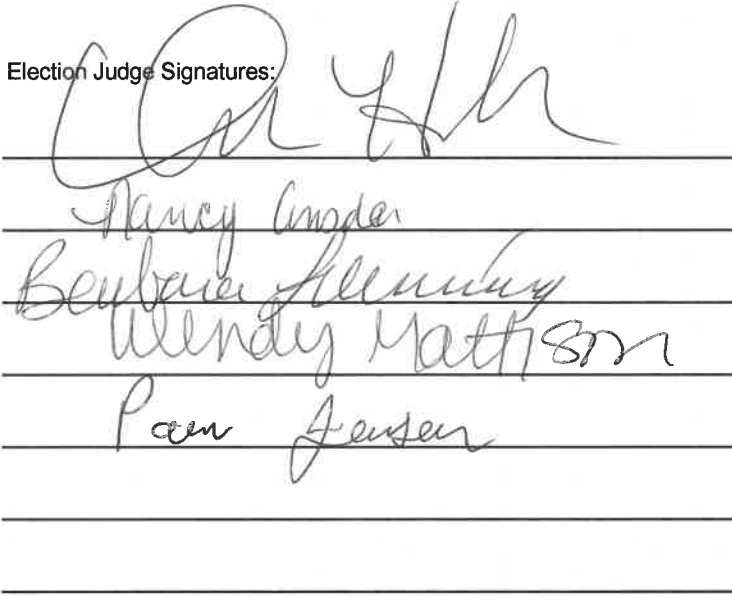 Election Judge Signatures:
Nancy
Barbara Flemming
Wendy Mattison
Pam Jensen